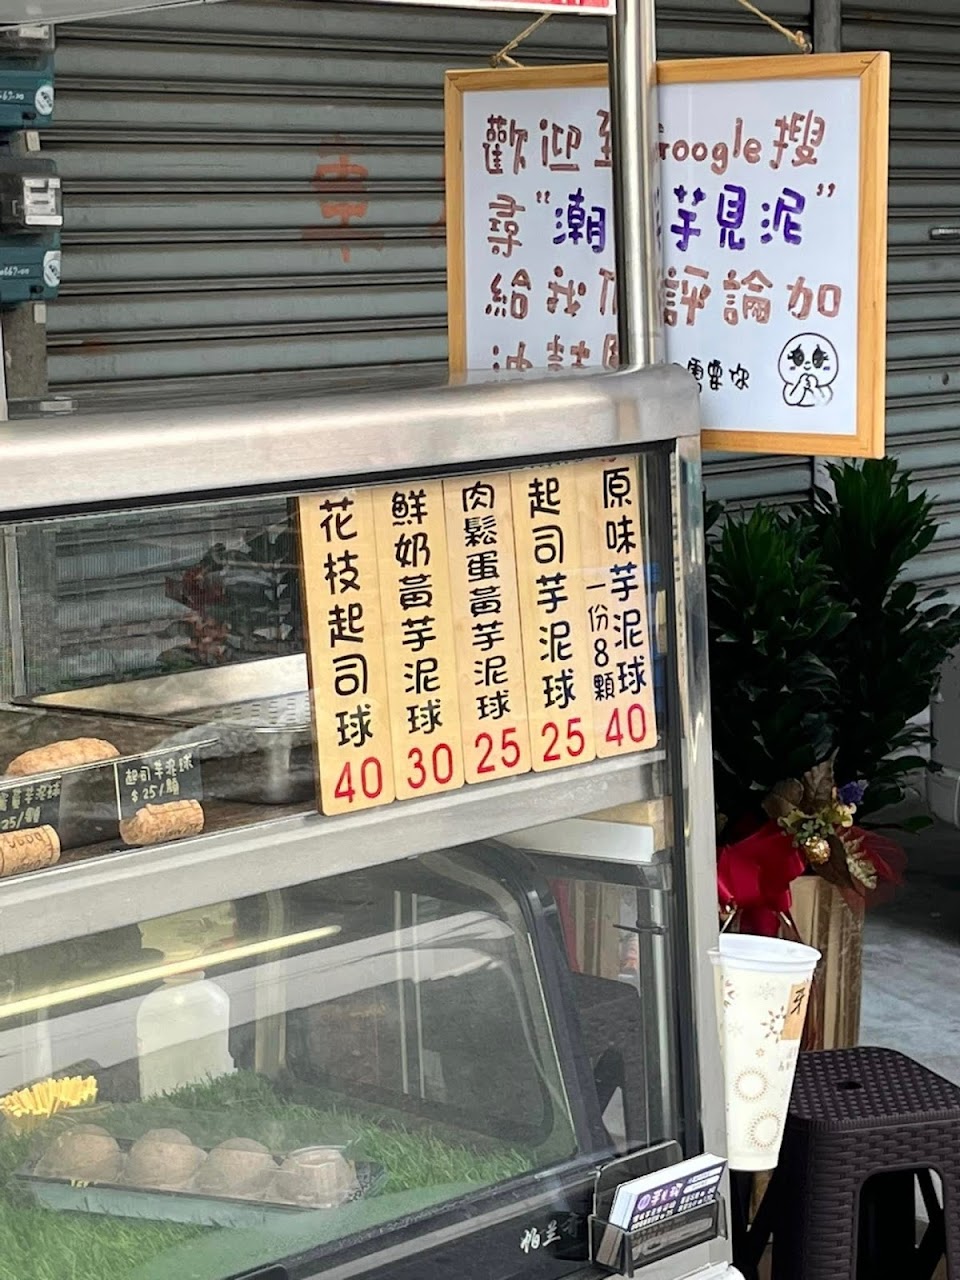 歡迎 Google搜
尋"潮 芋見泥"
給我們評論加
油
需要你
原味芋泥球
一份8顆
40
起司芋泥球
25
肉鬆蛋黃芋泥球
25
鮮奶黃芋泥球
30
花枝起司球
40
起司芋泥球
$25/顆
25/顆